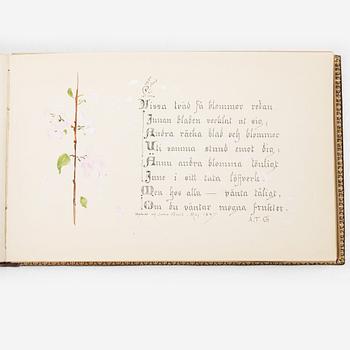 Vissa träd få blommor redan
Innan bladen vecklat ut sig,
Andra räcka blad och blommor
Uti samma stund emot dig;
Ännu andra blomma lönligt
Inne i sitt täta löfverk.
Men hos alla — vänta tåligt,
Om du väntar mogna frukter.